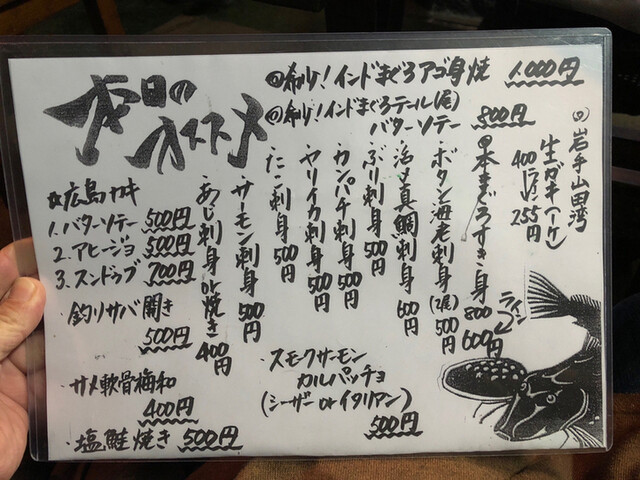 本日の
オススメ
◎希少!インドまぐろアゴ身焼 1.000円
◎希少!インドまぐろテール(尾)
バターソテー 800円
◎岩手山田湾
生ガキ(1ケ)
400→ライン→255円
◎本まぐろすき身 800→ライン→600円
・ボタン海老刺身(2尾)500円
・活〆真鯛刺身 600円
・ぶり刺身 500円
・カンパチ刺身 500円
・ヤリイカ刺身 500円
・たこ刺身 500円
・サーモン刺身 500円
・あじ刺身or焼き 400円
☆広島カキ
1.バターソテー 500円
2.アヒージョ 500円
3.スンドゥブ 700円
・釣りサバ開き
500円
・サメ軟骨梅和
400円
・塩鮭焼き 500円
・スモークサーモン
カルパッチョ
(シーザーorイタリアン)
500円